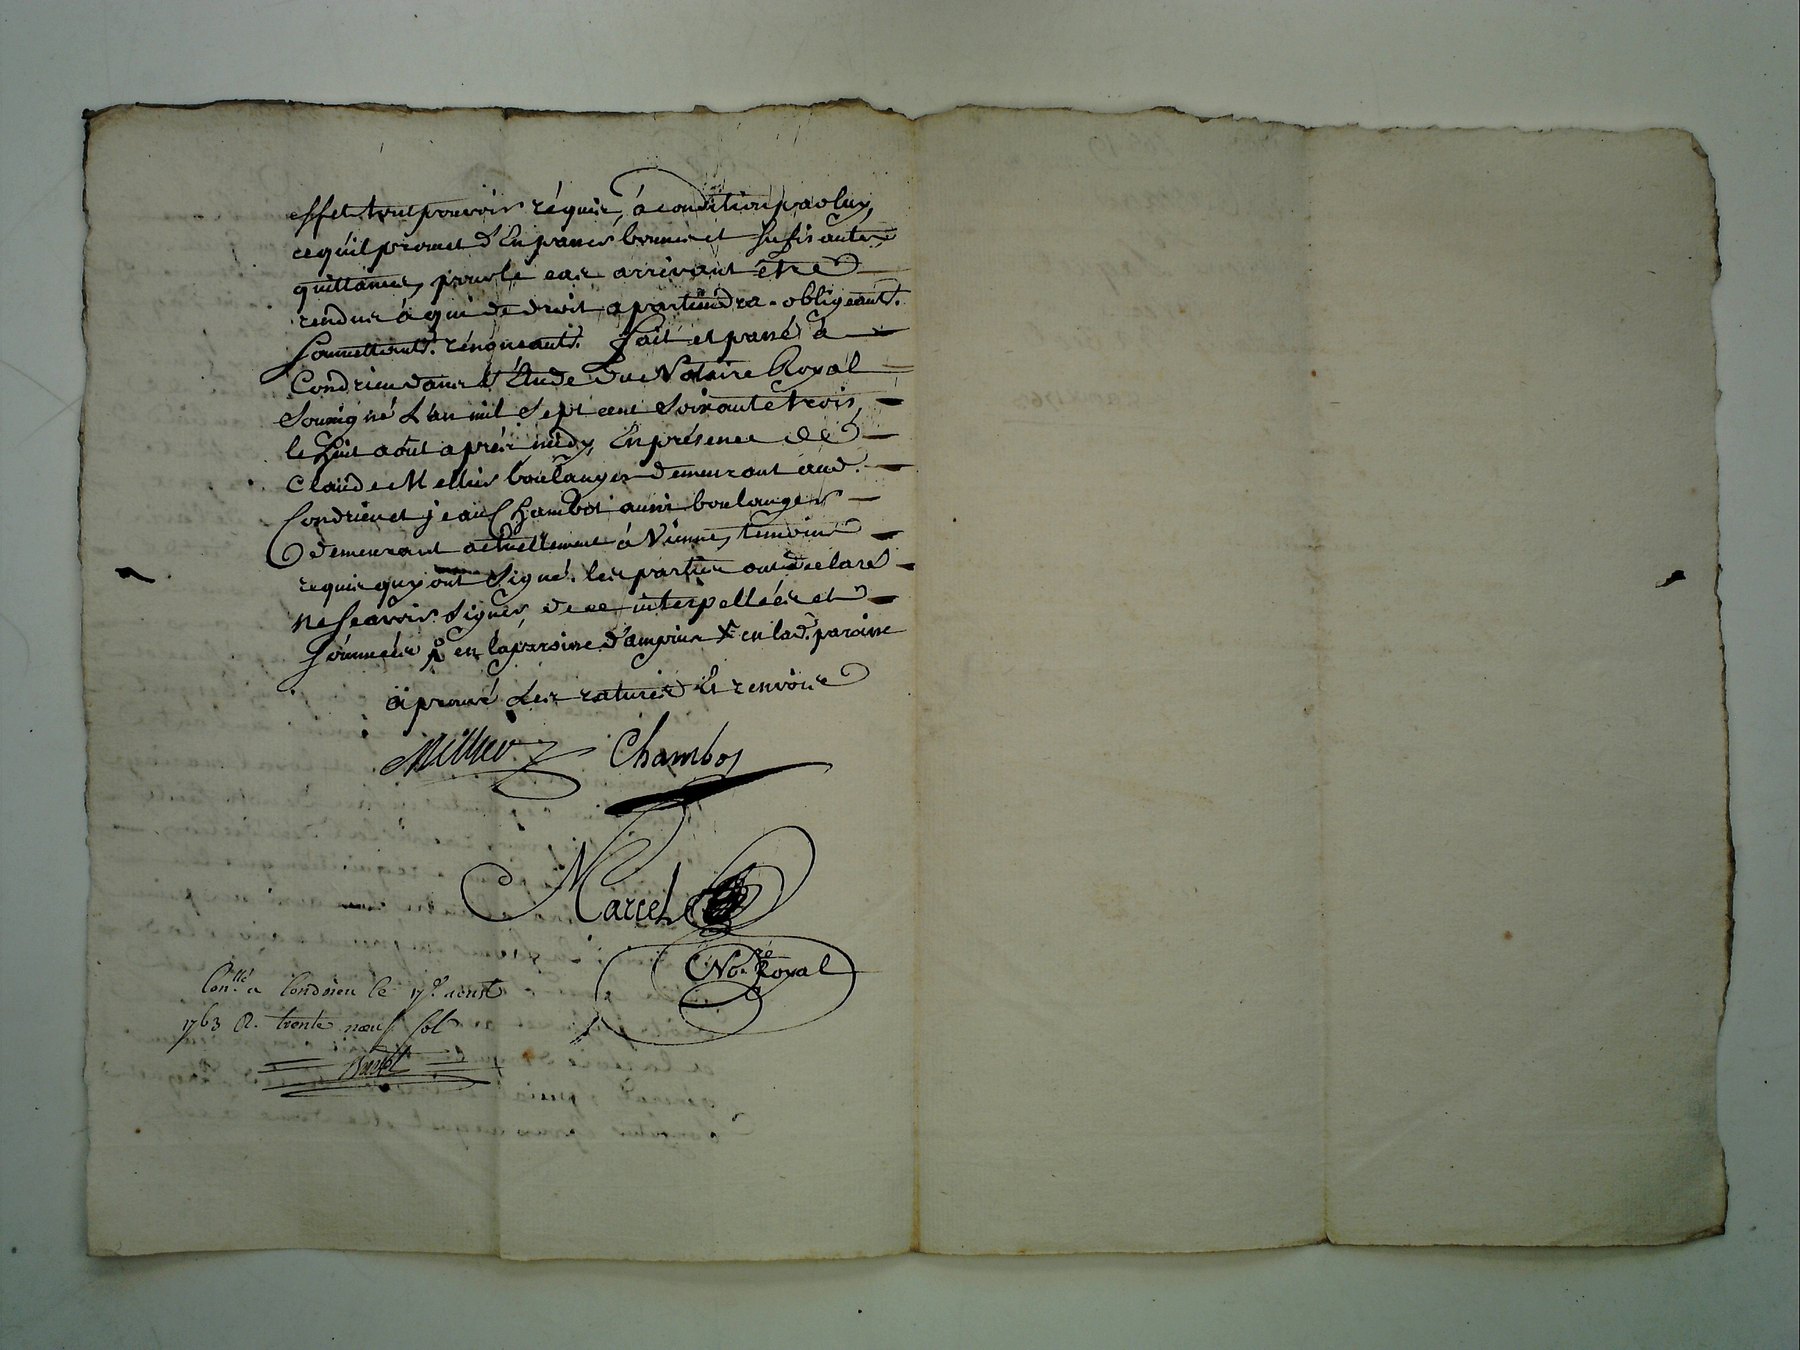 effet tout pouvoir réquis, à condition par luy,
ce qu'il promet d'En passer bonnes et sufisantes
quittances, pour le cas arrivant être
rendus à qui de droit apartiendra. obligeant.
soumettant. rénonceant. fait et passé à
Condrieu dans l'Etude du Notaire Royal
Soussigné L'an mil sept cent soixante trois,
le huit août après midy, En présence de
Claude Mellier boulanger demeurant aud.
Condrieu et jean Chambos aussi boulanger
demeurant actuellement à Vienne, témoins
requis quy ont signé. les parties ont déclaré
ne sçavoir signer, de ce interpellées et
sommées en la paroisse d'ampuis x en lad. paroisse
aprouvé les ratures & renvois
Mellier Chambos
Marcel
No.re Royal
Con.llé a Condrieu le 17e. aoust
1763 R. trente neuf sols